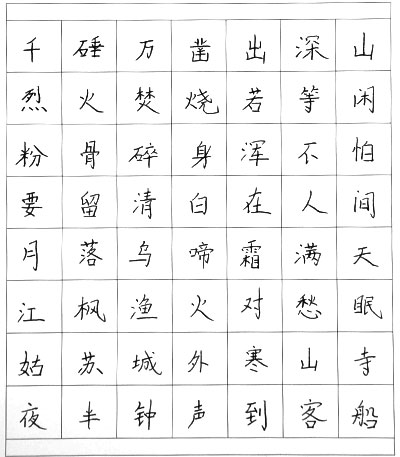 千碎万凿出深山
烈火焚烧若等闲
粉骨碎身浑不怕
要留清白在人间
月落乌啼霜满天
江枫渔火对愁眠
姑苏城外寒山寺
夜半钟声到客船